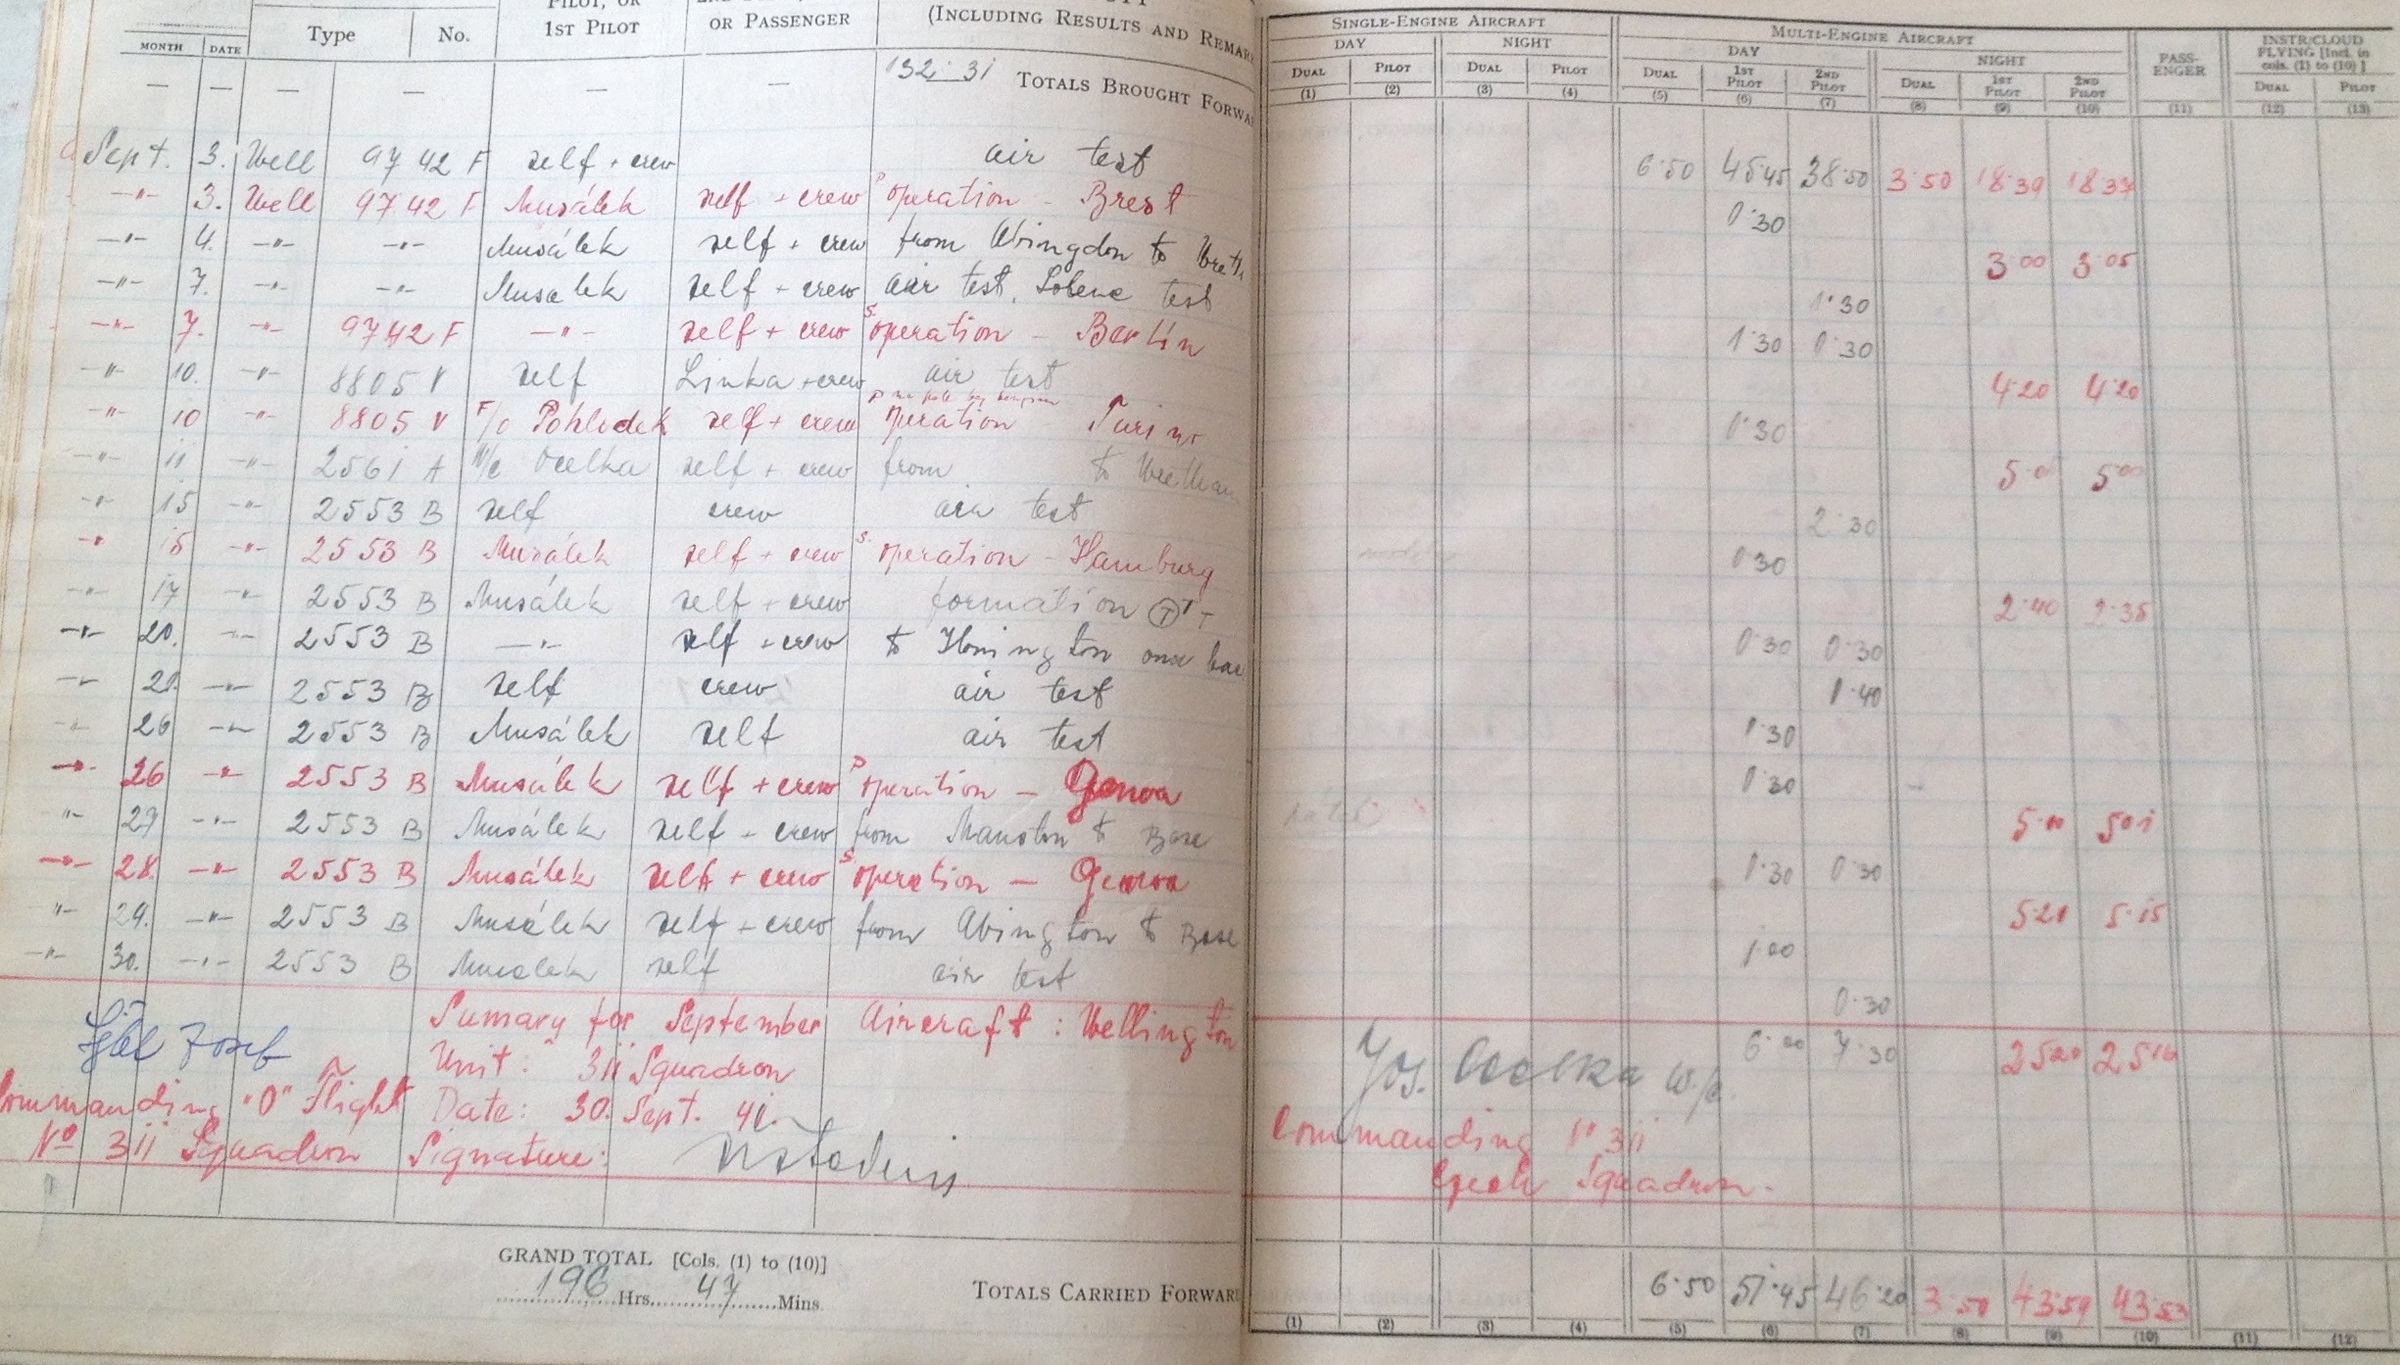 PILOT, OR (INCLUDING RESULTS AND REMAR
Type No. 1ST PILOT OR PASSENGER
MONTH DATE
— — — — — — 132 31 TOTALS BROUGHT FORWA
Sept. 3. Well 9742 F self + crew air test
-"- 3. Well 9742 F Musálek self + crew P operation - Brest
-"- 4. -"- -"- Musálek self + crew from Abingdon to
-"- 7. -"- -"- Musalek self + crew air test, test
-"- 7. -"- 9742 F -"- self + crew S. operation - Berlin
-"- 10. -"- 8805 V self Linka + crew air test
-"- 10 -"- 8805 V F/O Pohlodek self + crew operation Turino
-"- 11 -"- 2561 A W/c Ocelka self + crew from to Wretham
-"- 15 -"- 2553 B self crew air test
-"- 15 -"- 2553 B Musálek self + crew S. operation - Hamburg
-"- 17 -"- 2553 B Musálek self + crew formation
-"- 20. -"- 2553 B -"- self + crew to Honington
-"- 21. -"- 2553 B self crew air test
-"- 26 -"- 2553 B Musálek self air test
-"- 26 -"- 2553 B Musálek self + crew P operation - Genoa
-"- 27 -"- 2553 B Musálek self + crew from Manston to Base
-"- 28. -"- 2553 B Musálek self + crew S. operation - Genoa
-"- 29. -"- 2553 B Musálek self + crew from Abington to Base
-"- 30. -"- 2553 B Musalek self air test
Sumary for September Aircraft : Wellington
Josef Unit : 311 Squadron
Commanding "O" Flight Date: 30. Sept. 41.
No 311 Squadron Signature:
GRAND TOTAL [Cols. (1) to (10)]
196 Hrs. 47 Mins.
TOTALS CARRIED FORWAR
SINGLE-ENGINE AIRCRAFT MULTI-ENGINE AIRCRAFT PASS-ENGER INSTR/CLOUD FLYING [Incl. in cols. (1) to (10)]
DAY NIGHT DAY NIGHT
DUAL PILOT DUAL PILOT DUAL 1ST PILOT 2ND PILOT DUAL 1ST PILOT 2ND PILOT DUAL PILOT
(1) (2) (3) (4) (5) (6) (7) (8) (9) (10) (11) (12) (13)
6.50 45.45 38.50 3.50 18.39 18.37
0.30
3.00 3.05
1.30
1.30 0.30
4.20 4.20
0.30
5.00 5.00
2.30
0.30
2.40 2.35
0.30 0.30
1.40
0.30
5.00 5.01
0.30 0.30
5.20 5.15
1.00
0.30
Jos. Ocelka W/c. 6.00 7.30 25.20 25.16
Commanding No 311
Czech Squadron.
6.50 51.45 46.20 3.50 43.59 43.53
(1) (2) (3) (4) (5) (6) (7) (8) (9) (10) (11) (12)